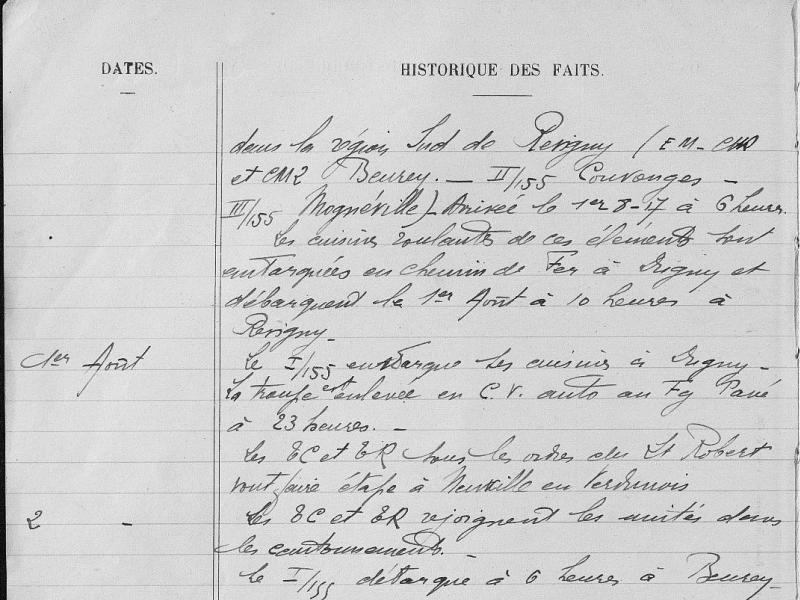 DATES.
HISTORIQUE DES FAITS.
dans la région Sud de Revigny (EM - CHR
et CM2 Beurey. — II/155 Couvonges —
III/155 Mognéville) — Arrivée le 1er 8-17 à 6 heures.
Les cuisines roulantes de ces éléments sont
embarquées en chemin de Fer à Dugny et
débarquent le 1er Août à 10 heures à
Revigny —
1er Août
Le I/155 embarque ses cuisines à Dugny —
La troupe est enlevée en C.V. auto au Fg Pavé
à 23 heures. —
Les TC et TR sous les ordres du Lt Robert
vont faire étape à Neuville en Verdunois
2 —
Les TC et TR rejoignent les unités dans
les cantonnements —
Le I/155 débarque à 6 heures à Beurey —